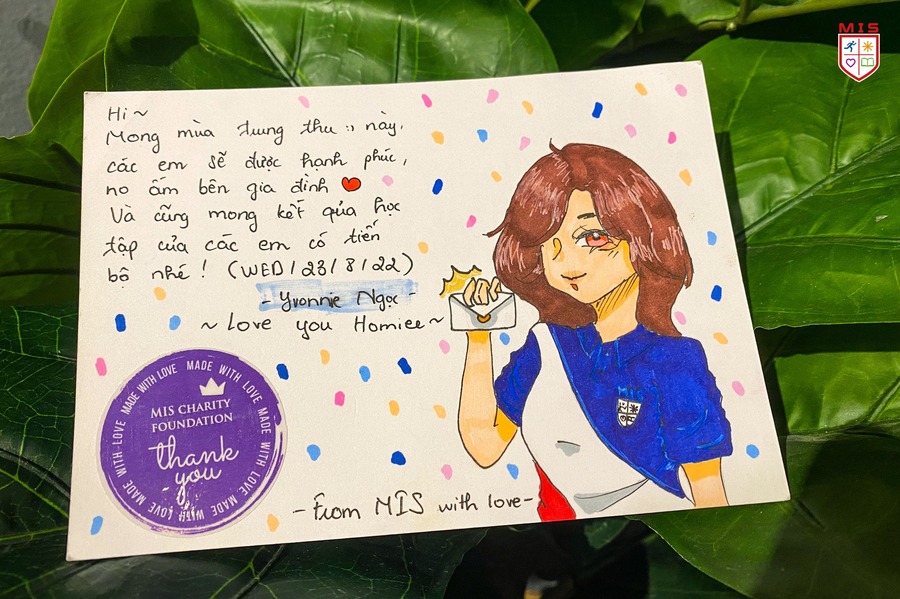 MIS
Hi ~
Mong mùa trung thu :) này,
các em sẽ được hạnh phúc,
no ấm bên gia đình
Và cũng mong kết qủa học
tập của các em có tiến
bộ nhé ! (WED / 23 / 8 / 22)
- Yvonnie Ngọc -
~ Love you Homiee ~
MADE WITH LOVE MADE WITH LOVE MADE WITH LOVE MADE WITH LOVE MADE WITH LOVE
MIS CHARITY
FOUNDATION
thank
you
- From MIS with love -